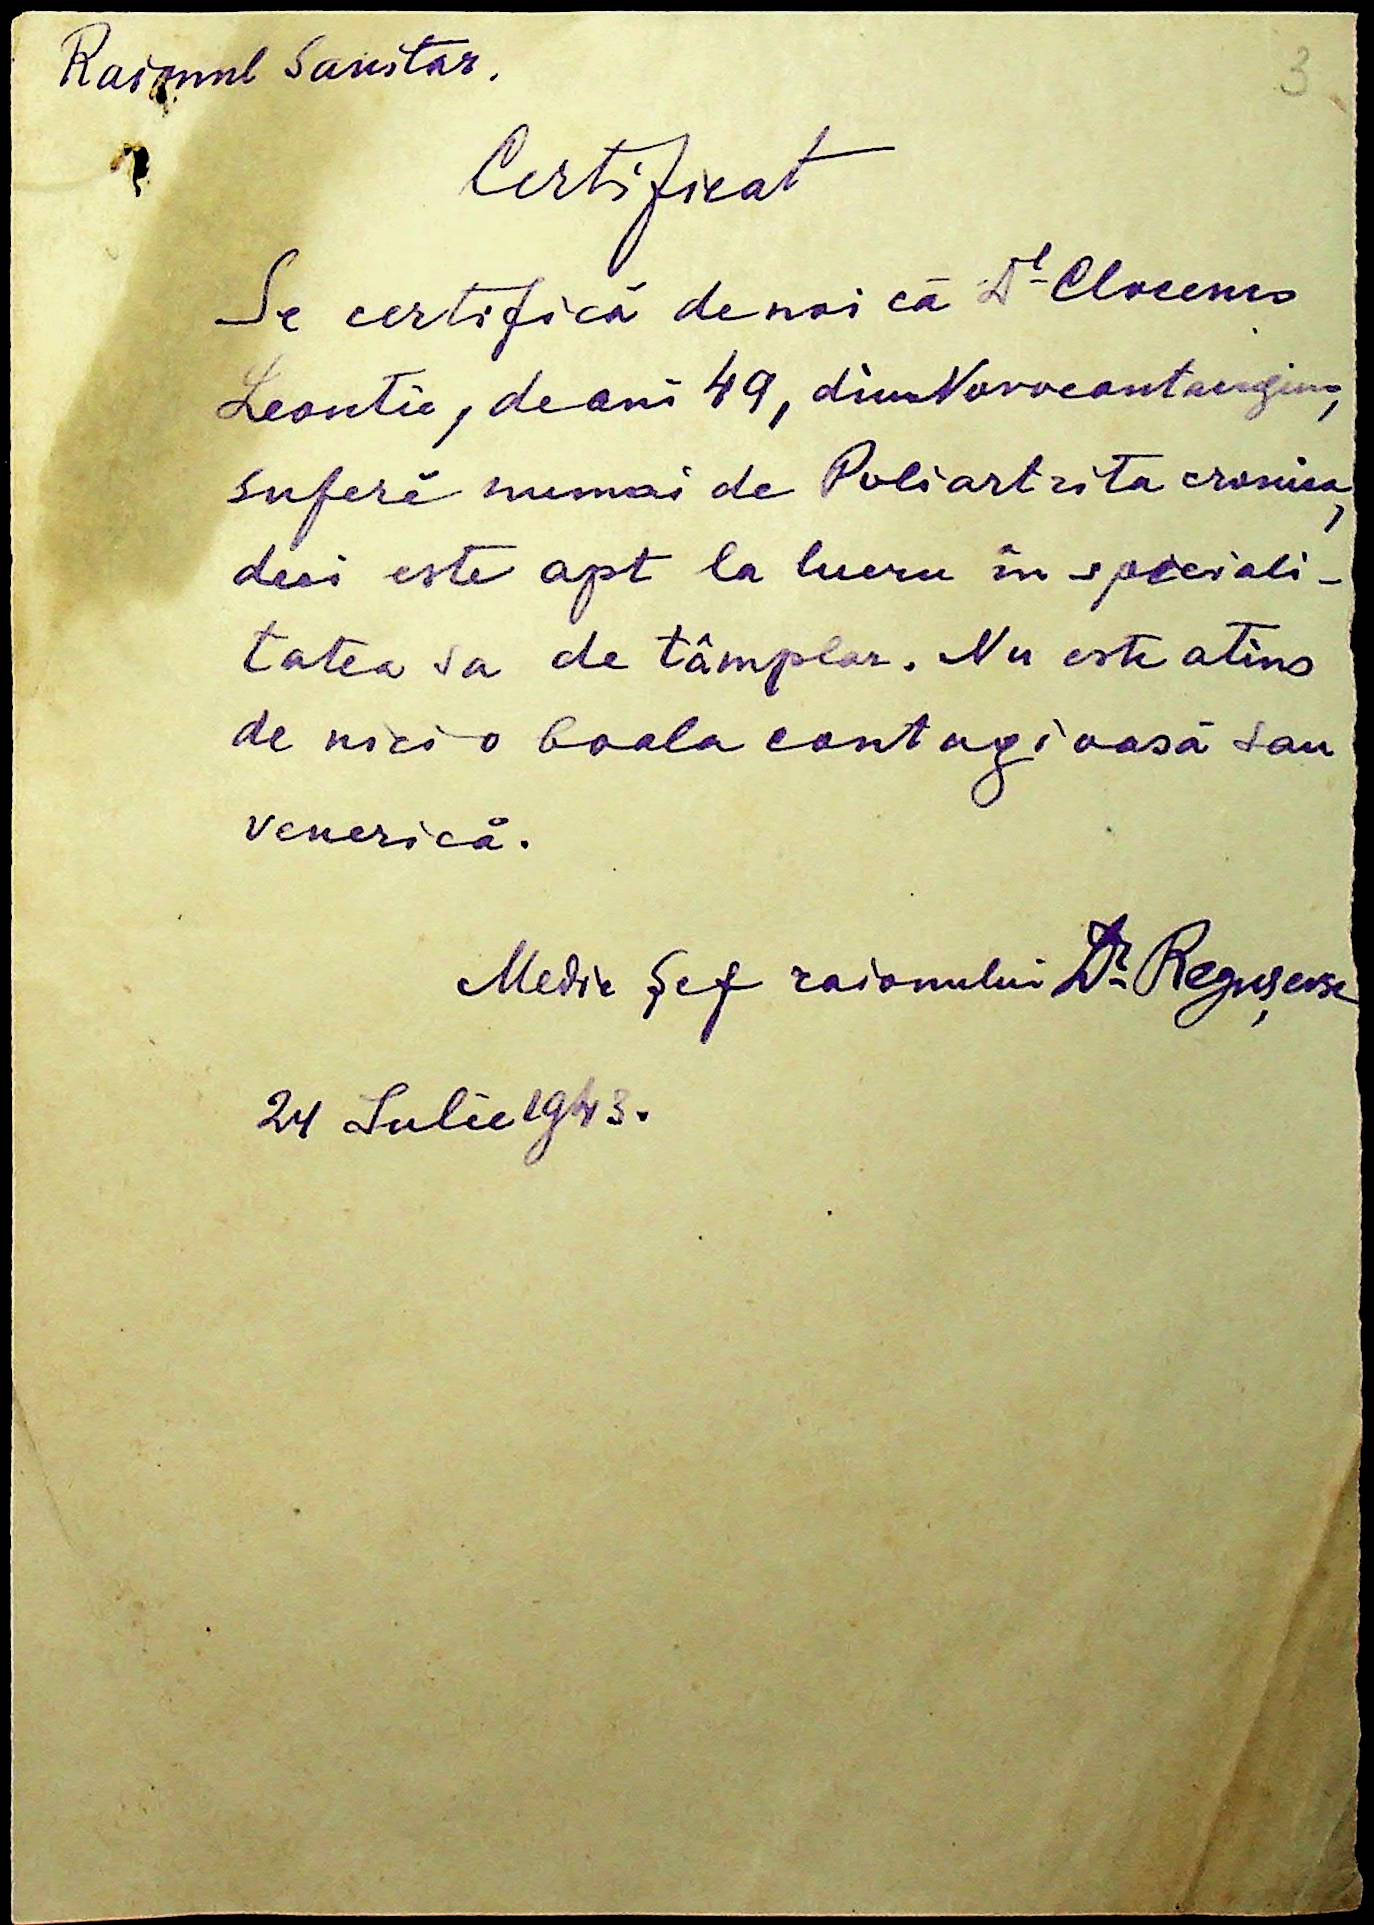 Raionul Sanitar.
3
Certificat
Se certifică de noi că Dl
Leontie, de ani 49, din
suferă numai de Poliartrita cronica,
deci este apt la lucru în speciali-
tatea sa de tâmplar. Nu este atins
de nici o boala contagioasă sau
venerică.
Medic Șef raionului Dr
24 Iulie 1943.